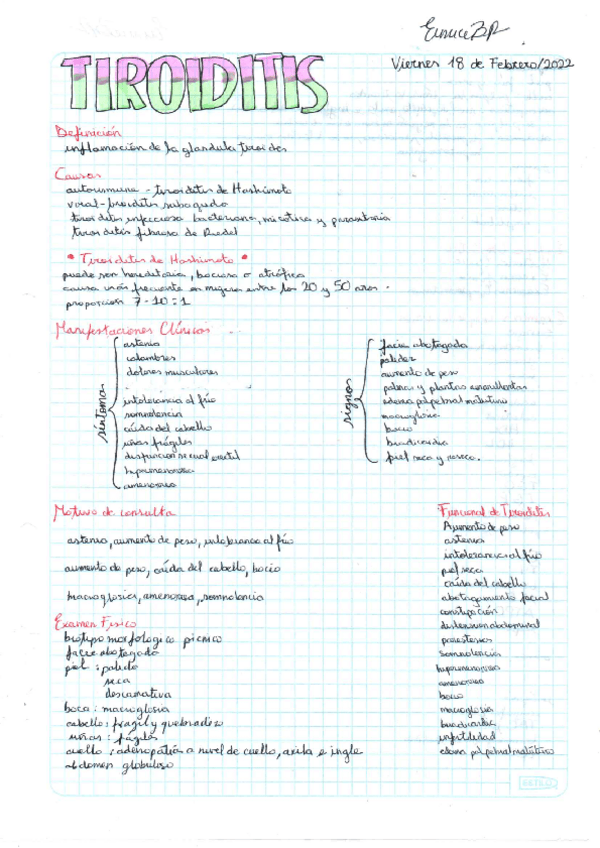 Eunice BR
Viernes 18 de Febrero/2022
TIROIDITIS
Definición
inflamación de la glandula tiroides
Causas
autoinmune - tiroiditis de Hashimoto
viral - tiroiditis subaguda
tiroiditis infecciosa bacteriana, micotica y parasitaria
tiroiditis fibrosa de Riedel
• Tiroiditis de Hashimoto •
puede ser hereditaria, bociosa o atrófica
causa más frecuente en mujeres entre los 20 y 50 años.
proporcion 7-10:1
Manifestaciones Clínicas
síntomas
astenia
calambres
dolores musculares
intolerancia al frío
somnolencia
caída del cabello
uñas frágiles
disfuncion sexual erectil
hipermenorrea
amenorrea
signos
facie abotagada
palidez
aumento de peso
palmas y plantas amarillentas
edema palpebral matutino
macroglosia
bocio
bradicardia
piel seca y roseca.
Motivo de consulta
astenia, aumento de peso, intolerancia al frío
aumento de peso, caída del cabello, bocio
macroglosia, amenorrea, somnolencia
Examen Fisico
biotipo morfologico picnico
facie abotagada
piel: palida
seca
descamativa
boca: macroglosia
cabello: fragil y quebradizo
uñas: frágiles
cuello: adenopatia a nivel de cuello, axila e ingle
abdomen globuloso
Funcional de Tiroiditis
Aumento de peso
astenia
intolerancia al frío
piel seca
caída del cabello
abotagamiento facial
constipación
distension abdominal
parestesias
somnolencia
hipermenorrea
amenorrea
bocio
macroglosia
bradicardia
infertilidad
edema palpebral matutino